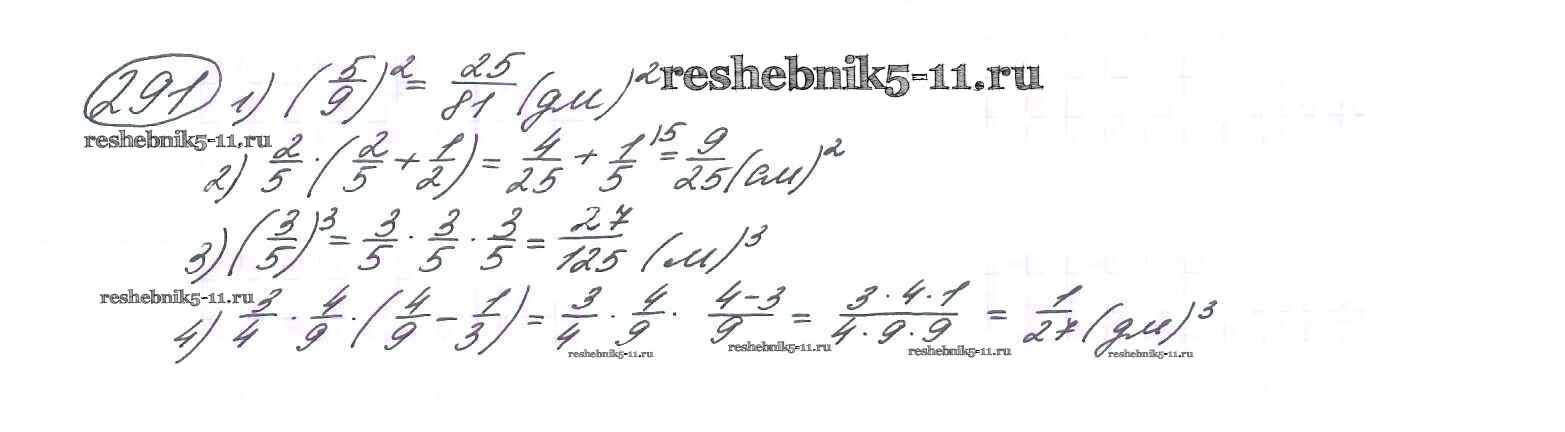 291 1) (5/9)² = 25/81 (дм)² reshebnik5-11.ru
reshebnik5-11.ru
2) 2/5 · (2/5 + 1/2) = 4/25 + 1/5 ¹⁵ = 9/25 (см)²
3) (3/5)³ = 3/5 · 3/5 · 3/5 = 27/125 (м)³
reshebnik5-11.ru
4) 3/4 · 4/9 · (4/9 − 1/3) = 3/4 · 4/9 · (4−3)/9 = (3·4·1)/(4·9·9) = 1/27 (дм)³
reshebnik5-11.ru reshebnik5-11.ru reshebnik5-11.ru reshebnik5-11.ru